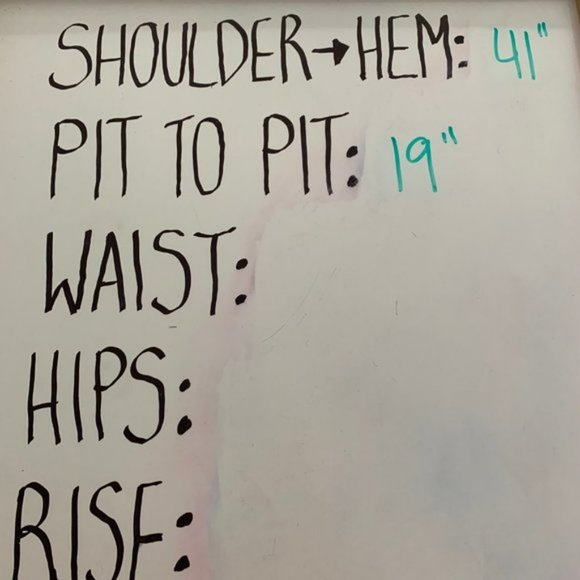 SHOULDER→HEM: 41"
PIT TO PIT: 19"
WAIST:
HIPS:
RISE: